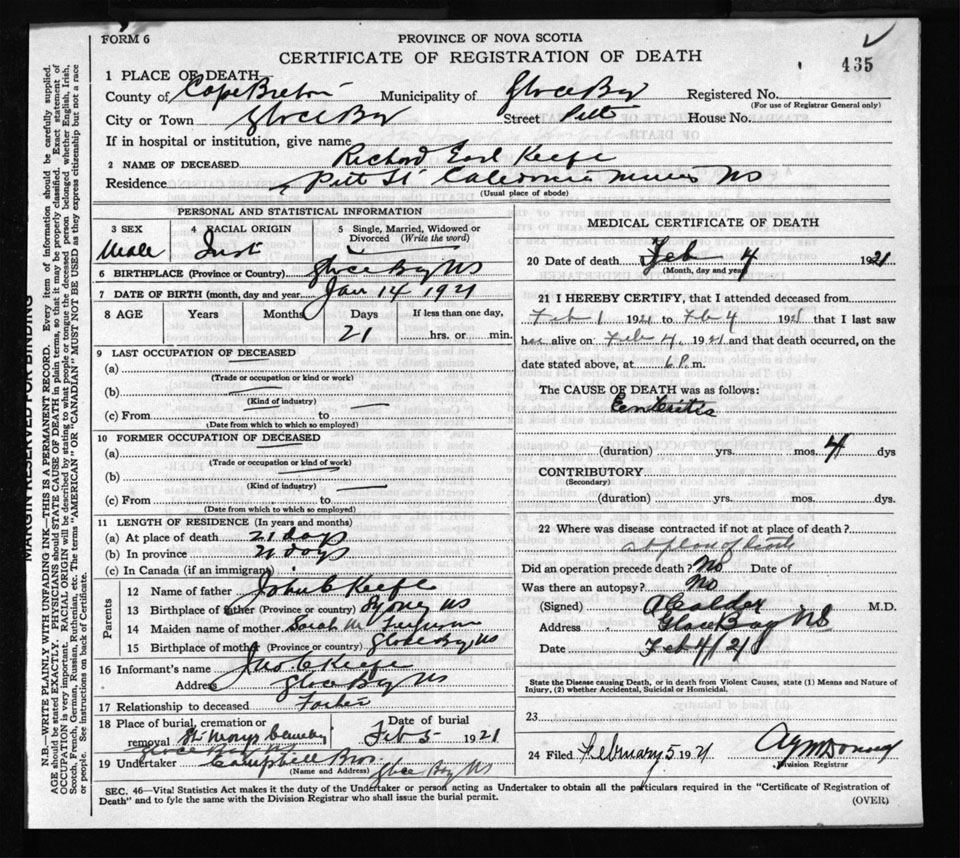 FORM 6
PROVINCE OF NOVA SCOTIA
CERTIFICATE OF REGISTRATION OF DEATH
435
1 PLACE OF DEATH
County of Cape Breton Municipality of Glace Bay Registered No.
(For use of Registrar General only)
City or Town Glace Bay Street Pitt House No.
If in hospital or institution, give name
2 NAME OF DECEASED Richard Earl Keefe
Residence Pitt St Caledonia Mines NS
(Usual place of abode)
PERSONAL AND STATISTICAL INFORMATION
3 SEX 4 RACIAL ORIGIN 5 Single, Married, Widowed or Divorced (Write the word)
Male Irish
6 BIRTHPLACE (Province or Country) Glace Bay NS
7 DATE OF BIRTH (month, day and year) Jan 14 1921
8 AGE Years Months Days If less than one day,
21 hrs. or min.
9 LAST OCCUPATION OF DECEASED
(a)
(Trade or occupation or kind or work)
(b)
(Kind of industry)
(c) From to
(Date from which to which so employed)
10 FORMER OCCUPATION OF DECEASED
(a)
(Trade or occupation or kind of work)
(b)
(Kind of industry)
(c) From to
(Date from which to which so employed)
11 LENGTH OF RESIDENCE (In years and months)
(a) At place of death 21 days
(b) In province 21 days
(c) In Canada (if an immigrant)
Parents
12 Name of father John C Keefe
13 Birthplace of father (Province or country) Sydney NS
14 Maiden name of mother Sarah M
15 Birthplace of mother (Province or country) Glace Bay NS
16 Informant's name Jno C Keefe
Address Glace Bay NS
17 Relationship to deceased Father
18 Place of burial, cremation or removal Date of burial
St. Marys Cemetery Feb 5 1921
19 Undertaker Campbell Bros
(Name and Address) Glace Bay NS
MEDICAL CERTIFICATE OF DEATH
20 Date of death Feb 4 1921
(Month, day and year)
21 I HEREBY CERTIFY, that I attended deceased from
Feb 1 1921 to Feb 4 1921 that I last saw
alive on Feb 4, 1921 and that death occurred, on the
date stated above, at 6 P. m.
The CAUSE OF DEATH was as follows:
Enteritis
(duration) yrs. mos. 4 dys
CONTRIBUTORY
(Secondary)
(duration) yrs. mos. dys.
22 Where was disease contracted if not at place of death?
at place of death
Did an operation precede death? No Date of
Was there an autopsy? No
(Signed) A Calder M.D.
Address Glace Bay NS
Date Feb 4/21
State the Disease causing Death, or in death from Violent Causes, state (1) Means and Nature of
Injury, (2) whether Accidental, Suicidal or Homicidal.
23
24 Filed February 5 1921
Division Registrar
SEC. 46—Vital Statistics Act makes it the duty of the Undertaker or person acting as Undertaker to obtain all the particulars required in the "Certificate of Registration of
Death" and to fyle the same with the Division Registrar who shall issue the burial permit.
(OVER)
MARGIN RESERVED FOR BINDING
N.B.—WRITE PLAINLY WITH UNFADING INK—THIS IS A PERMANENT RECORD. Every item of information should be carefully supplied.
AGE should be stated EXACTLY. PHYSICIANS should STATE CAUSE OF DEATH in plain terms, so that it may be properly classified. Exact statement of
OCCUPATION is very important. RACIAL ORIGIN will be described by stating to what people or tongue the deceased person belonged whether English, Irish,
Scotch, French, German, Russian, Ruthenian, etc. The terms "AMERICAN" or "CANADIAN" MUST NOT BE USED as they express citizenship but not a race
or people. See instructions on back of Certificate.